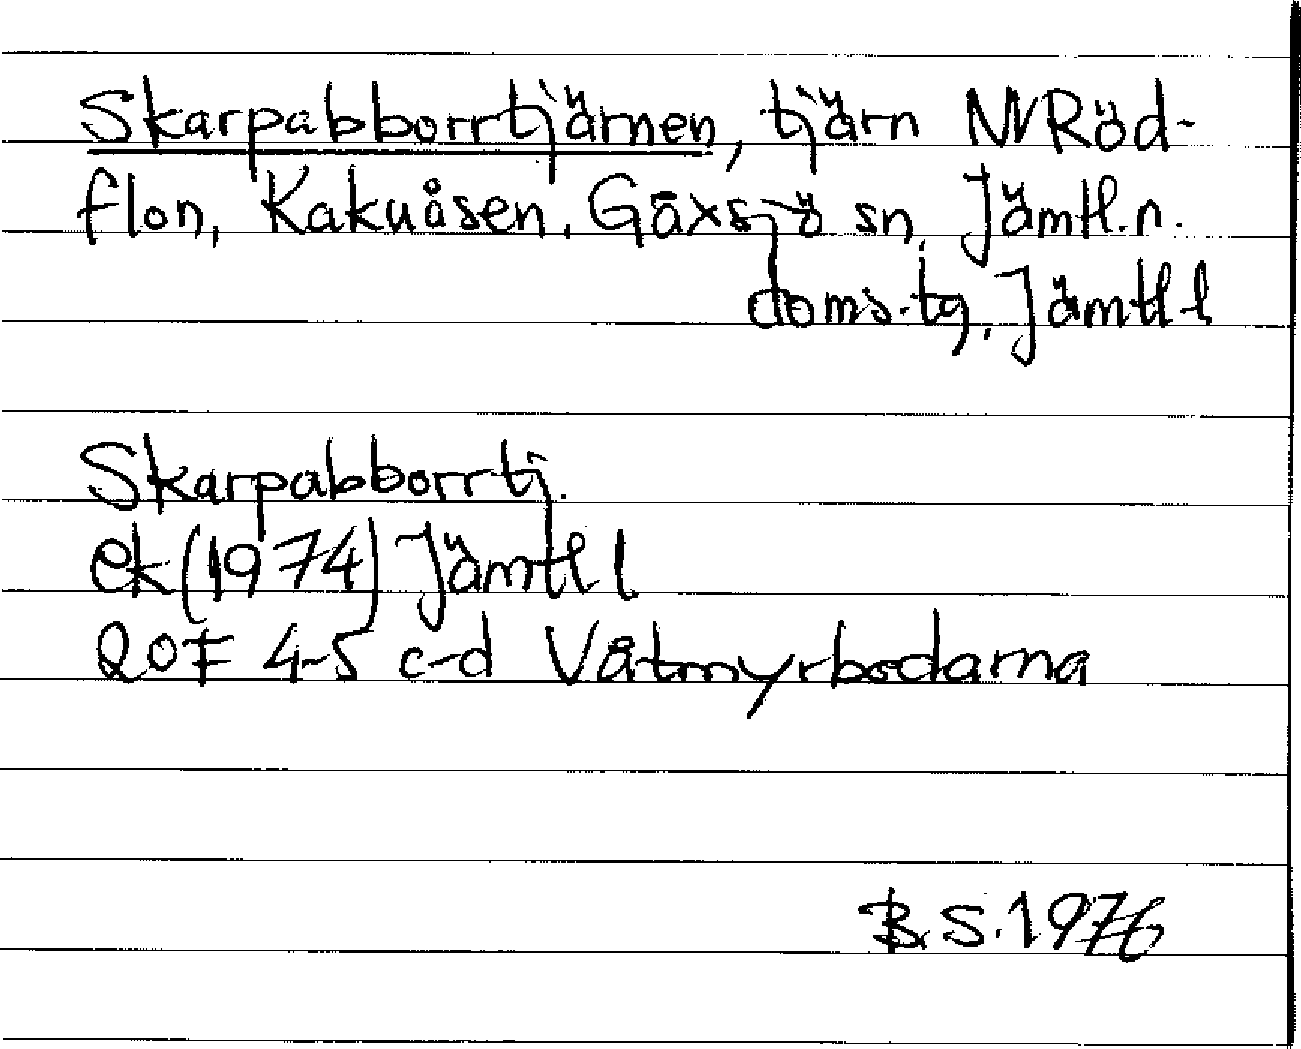 Skarpabborrtjärnen, tjärn NV Röd-
flon, Kakuåsen, Gåxsjö sn, Jämtl.n.
doms.tg, Jämtl l
Skarpabborrtj.
ek (1974) Jämtl l
20F 4-5 c-d Våtmyrbodarna
B.S. 1976